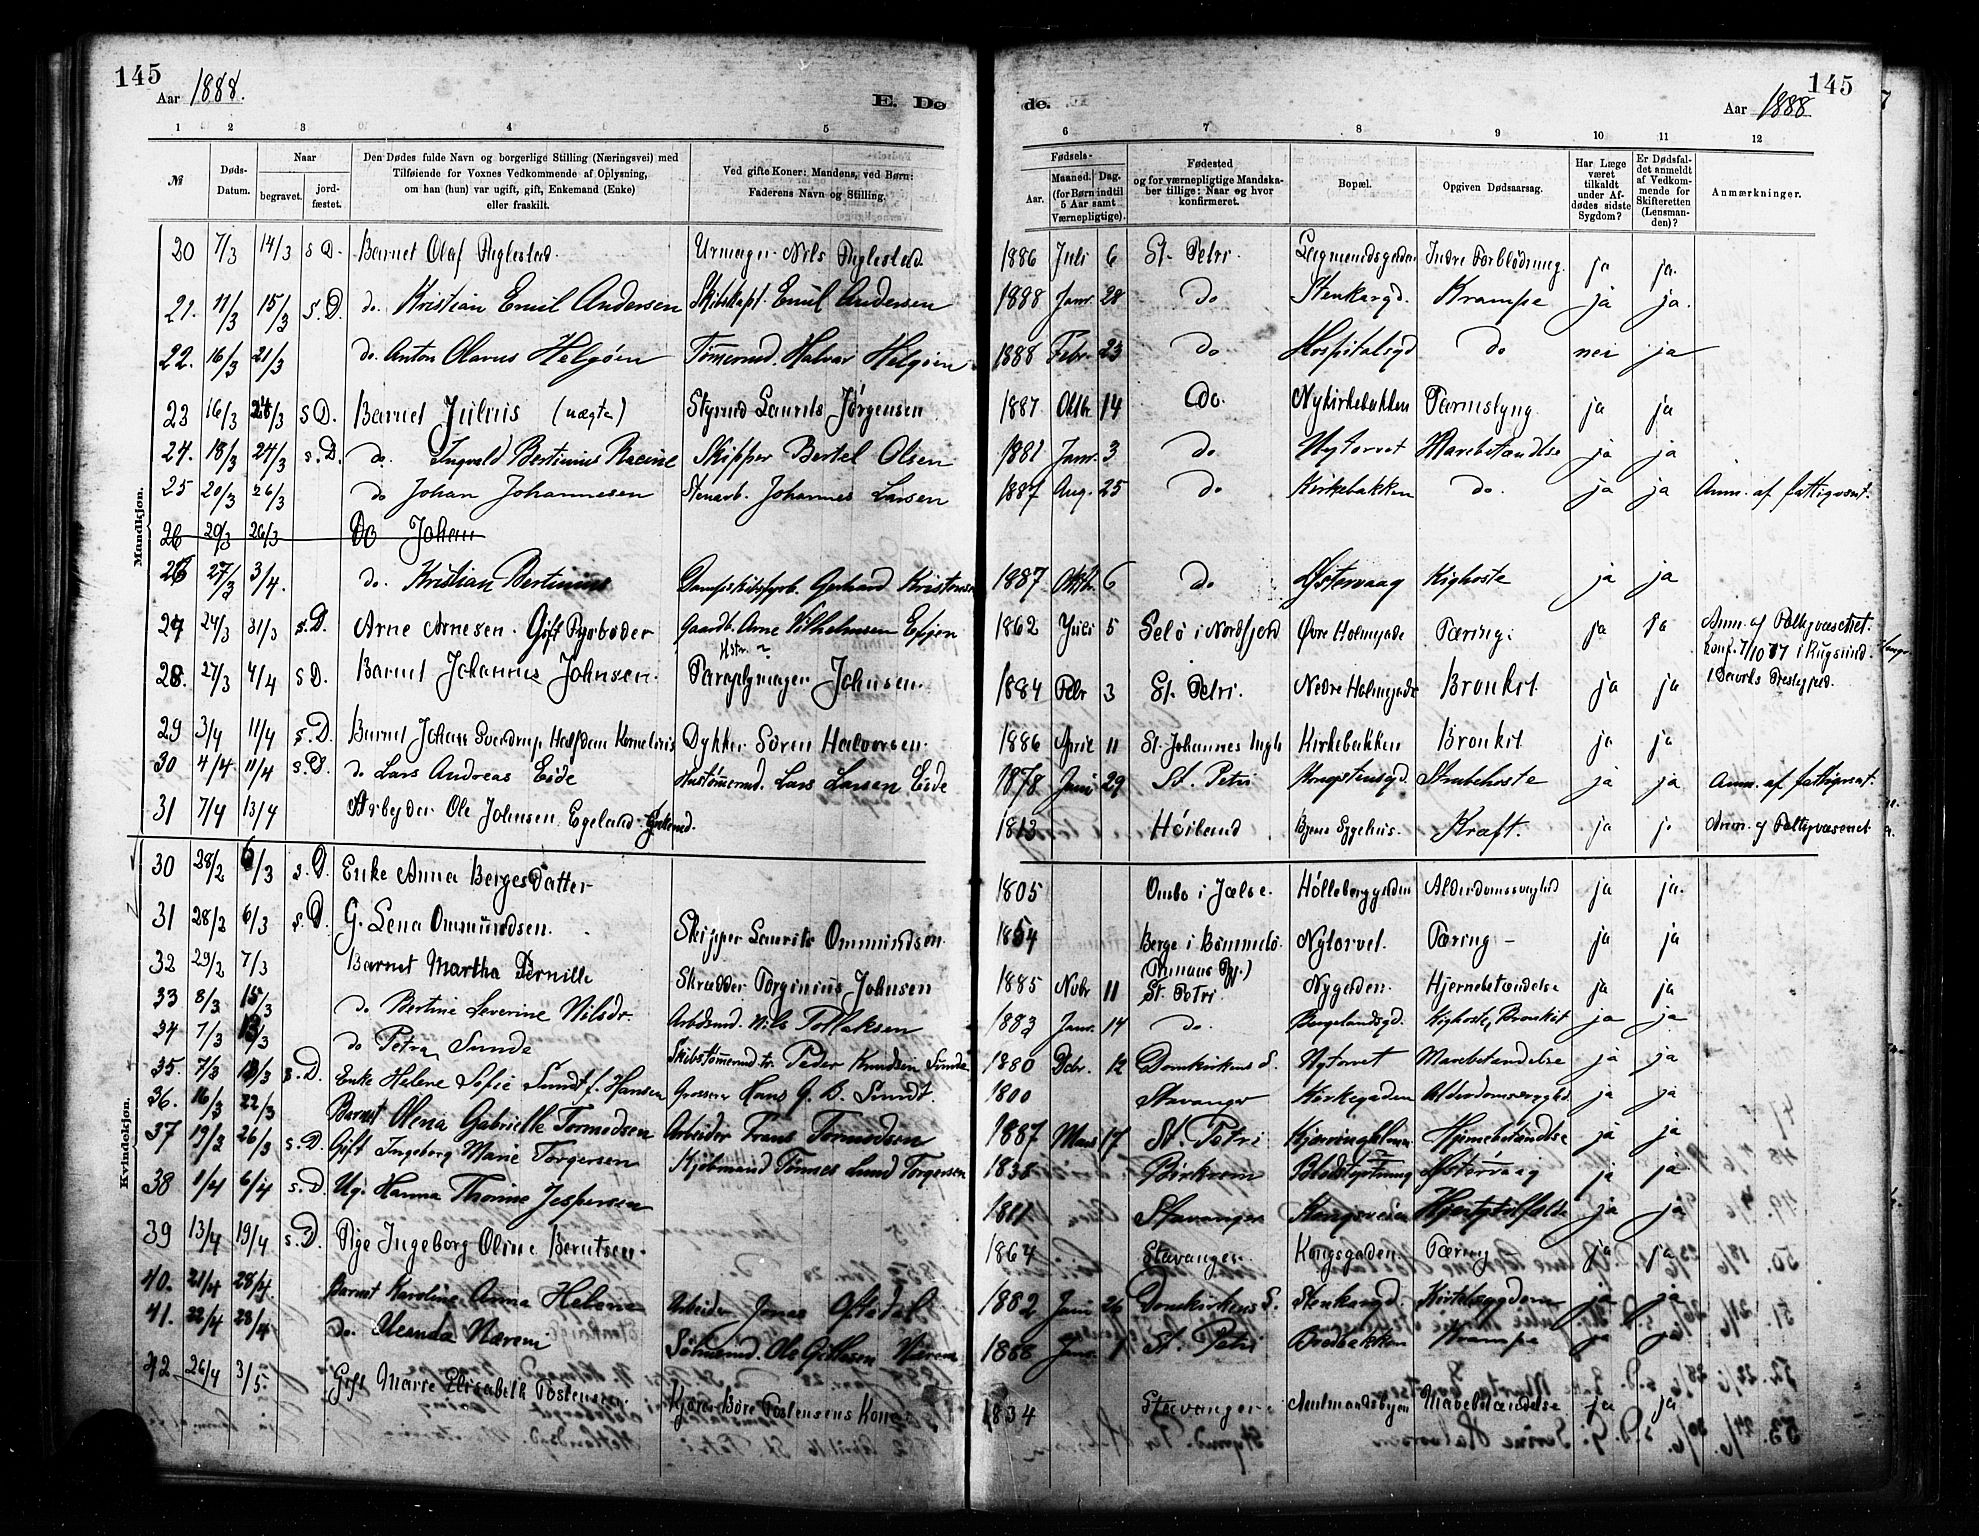 145
Aar 1888.
E. Dø
1 2 3 4 5
№
Døds-Datum.
Naar
begravet.
jord-fæstet.
Den Dødes fulde Navn og borgerlige Stilling (Næringsvei) med
Tilføiende for Voxnes Vedkommende af Oplysning,
om han (hun) var ugift, gift, Enkemand (Enke)
eller fraskilt.
Ved gifte Koner: Mandens, ved Børn:
Faderens Navn og Stilling.
Mandkjøn.
20 7/3 14/3 s D. Barnet Olaf Urmager Nils
21. 11/3 15/3 s. D. do. Kristian Emil Andersen Skibskapt. Emil Andersen
22. 16/3 21/3 do. Anton Olavus Helgøen Tømmermd. Halvar Helgøen
23 16/3 3 s D. Barnet Julius (uægte) Styrmd Laurits Jørgensen
24. 18/3 24/3 s. D. do. Ingvald Bertinius Racine Skipper Bertel Olsen
25 20/3 26/3 do Johan Johannesen Stenarb. Johannes Larsen
26 20/3 26/3 Do Johan
26 27/3 3/4. do. Kristian Bertinius Gerhard Kristensen
27 24/3 31/3 s. D. Arne Arnesen. Gift Gaardb. Arne Vilhelmsen
28. 27/3 4/4 s D. Barnet Johannes Johnsen. Paraplymager Johnsen.
29 3/4 11/4 s. D. Barnet Johan Sverdrup Halfdan Kornelius Dykker Sören Halvorsen.
30 4/4 11/4 s. D. do Lars Andreas Eide Hustømmermd. Lars Larsen Eide
31 7/4 13/4 Arbejder Ole Johnsen Egeland. Enkemd.
Kvindekjøn.
30 28/2 6/3 s. D. Enke Anna Bergesdatter
31 28/2 6/3 s. D. G. Lena Ommundsen. Skipper Laurits Ommundsen
32 29/2 7/3 Barnet Martha Pernille Skrædder Torginius Johnsen
33 8/3 15/3 do Bertine Severine Nilsdr. Arbdsmd. Nils Tollaksen
34 7/3 13/3 do Petra Sunde Skibstømmermd. Peder Knudsen Sunde
35. 7/3 13/3 s. D. Enke Helene Sofie Sundt f. Hansen Grosserer Hans G. B. Sundt.
36. 16/3 22/3 Barnet Olena Gabrielle Tormodsen Arbeider Frans Tormodsen
37 19/3 26/3 s. D. Gift Ingeborg Marie Torgersen Kjøbmand Tønnes Lund Torgersen
38 1/4 6/4 s. D. Ug. Hanna Thorine Jespersen
39 13/4 19/4 s. D. Pige Ingeborg Oline Berntsen.
40. 21/4 28/4 Barnet Karoline Anna Helene Arbeider Jonas Oftedal
41. 22/4 28/4 do. Olenda Nærem Sømand. Ole Gittlesen Nærem
42 26/4 3/5. Gift Marie Elisabeth Tostensen. Bore Tostensens Kone
145
Aar 1888
de.
6 7 8 9 10 11 12
Fødsels-
Aar.
Maaned. Dag.
(for Børn indtil
5 Aar samt
Værnepligtige).
Fødested
og for værnepligtige Mandska-
ber tillige: Naar og hvor
konfirmeret.
Bopæl.
Opgiven Dødsaarsag.
Har Læge
været
tilkaldt
under Af-
dødes sidste
Sygdom?
Er Dødsfal-
det anmeldt
af Vedkom-
mende for
Skifteretten
(Lensman-
den)?
Anmærkninger.
1886 Juli 6 St. Petri. Indre Forblödning ja ja.
1888 Janr. 28 do Stenkargd. Krampe ja ja.
1888 Febr. 23 do Hospitalsgd do nei ja
1887 Oktbr. 14 do. Nykirkebakken ja ja
1881 Janr. 3 do Nytorvet ja ja
1887 Aug. 25 do Kirkebakken do. ja ja Anm. af fattigvæsnt.
1887. Oktbr. 6 do Østervaag Kighoste ja ja
1862 Juli 5 Selö i Nordfjord Øvre Holmegade Tæring. ja ja Anm. af Fattigvæsenet.
Konf. 7/10 77 i Rugsund
1884 Febr 3 St. Petri. Nedre Holmegade Bronkit ja ja
1886 April 11 St. Johannes Kirkebakken Bronkit ja ja
1878 Juni 29 St. Petri Kongstensgd. Strubehoste ja ja Anm. af fattigvæsnt.
1813 Höiland Byens Sygehus. Kræft. ja ja Anm. af Fattigvæsenet
1805 Ombo i Jælse. Hölleberggaden Alderdomssvaghed ja ja.
1854 Berge i Bömmelö. Nytorvet. Tæring ja ja
1885 Novbr 11 St. Petri. Nygaden. Hjernebetændelse ja ja
1883 Janr. 14 do. Bergelandsgd. Kighoste, Bronkit ja ja
1880 Dcbr. 12 Domkirkens S. Nytorvet Mavebetændelse ja ja
1800 Stavanger Kirkegaden Alderdomssvaghd ja ja
1887 Mars 17 St. Petri Hjernebetændlse ja ja
1838 Birkrem ja ja
1811 Stavanger ja ja
1864 Stavanger. Kongsgaden. Tæring ja ja
1882 Juni 26 Domkirkens S. Stenkargd. ja ja
1888 Janr. 1 St. Petri Bredbakken Krampe ja ja
1834 Stavanger. Mavebetændelse ja ja